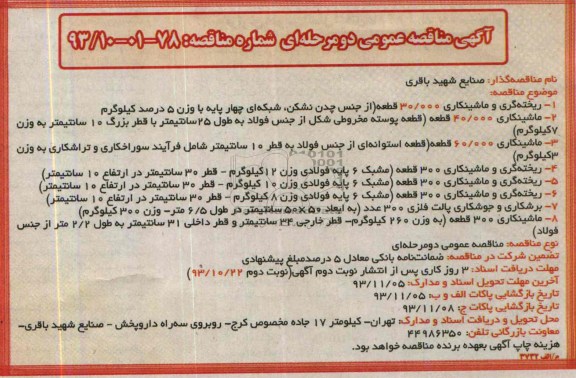 آگهی مناقصه عمومی دو مرحله‌ای شماره مناقصه: ۷۸-۰۱-۹۳/۱۰
نام مناقصه‌گذار: صنایع شهید باقری
موضوع مناقصه:
۱- ریخته‌گری و ماشینکاری ۳۰/۰۰۰ قطعه(از جنس چدن نشکن، شبکه‌ای چهار پایه با وزن ۵ درصد کیلوگرم
۲- ماشینکاری ۴۰/۰۰۰ قطعه (قطعه پوسته مخروطی شکل از جنس فولاد به طول ۲۵سانتیمتر با قطر بزرگ ۱۰ سانتیمتر به وزن
۷کیلوگرم)
۳- ماشینکاری ۶۰/۰۰۰ قطعه(قطعه استوانه‌ای از جنس فولاد به قطر ۱۰ سانتیمتر شامل فرآیند سوراخکاری و تراشکاری به وزن
۳کیلوگرم)
۴- ریخته‌گری و ماشینکاری ۳۰۰ قطعه (مشبک ۶ پایه فولادی وزن ۱۲کیلوگرم - قطر ۳۰ سانتیمتر در ارتفاع ۱۰ سانتیمتر)
۵- ریخته‌گری و ماشینکاری ۳۰۰ قطعه (مشبک ۶ پایه فولادی وزن ۱۰ کیلوگرم - قطر ۳۰ سانتیمتر در ارتفاع ۱۰ سانتیمتر)
۶- ریخته‌گری و ماشینکاری ۳۰۰ قطعه (مشبک ۶ پایه فولادی وزن ۸ کیلوگرم - قطر ۳۰ سانتیمتر در ارتفاع ۱۰ سانتیمتر)
۷- برشکاری و جوشکاری پالت فلزی ۳۰۰ عدد (به ابعاد ۵۰×۵۰ سانتیمتر در طول ۶/۵ متر- وزن ۳۰۰ کیلوگرم)
۸- ماشینکاری ۳۰۰ قطعه (به وزن ۲۶۰ کیلوگرم- قطر خارجی ۳۴ سانتیمتر و قطر داخلی ۳۱ سانتیمتر به طول ۲/۲ متر از جنس
فولاد)
نوع مناقصه: مناقصه عمومی دومرحله‌ای
تضمین شرکت در مناقصه: ضمانت‌نامه بانکی معادل ۵ درصدمبلغ پیشنهادی
مهلت دریافت اسناد: ۳ روز کاری پس از انتشار نوبت دوم آگهی(نوبت دوم ۹۳/۱۰/۲۲)
آخرین مهلت تحویل اسناد و مدارک: ۹۳/۱۱/۰۵
تاریخ بازگشایی پاکات الف و ب: ۹۳/۱۱/۰۵
تاریخ بازگشایی پاکات ج: ۹۳/۱۱/۰۸
محل تحویل و دریافت اسناد و مدارک: تهران- کیلومتر ۱۷ جاده مخصوص کرج- روبروی سه‌راه داروپخش - صنایع شهید باقری-
معاونت بازرگانی تلفن: ۴۴۹۸۶۳۵۰
هزینه چاپ آگهی بعهده برنده مناقصه خواهد بود.